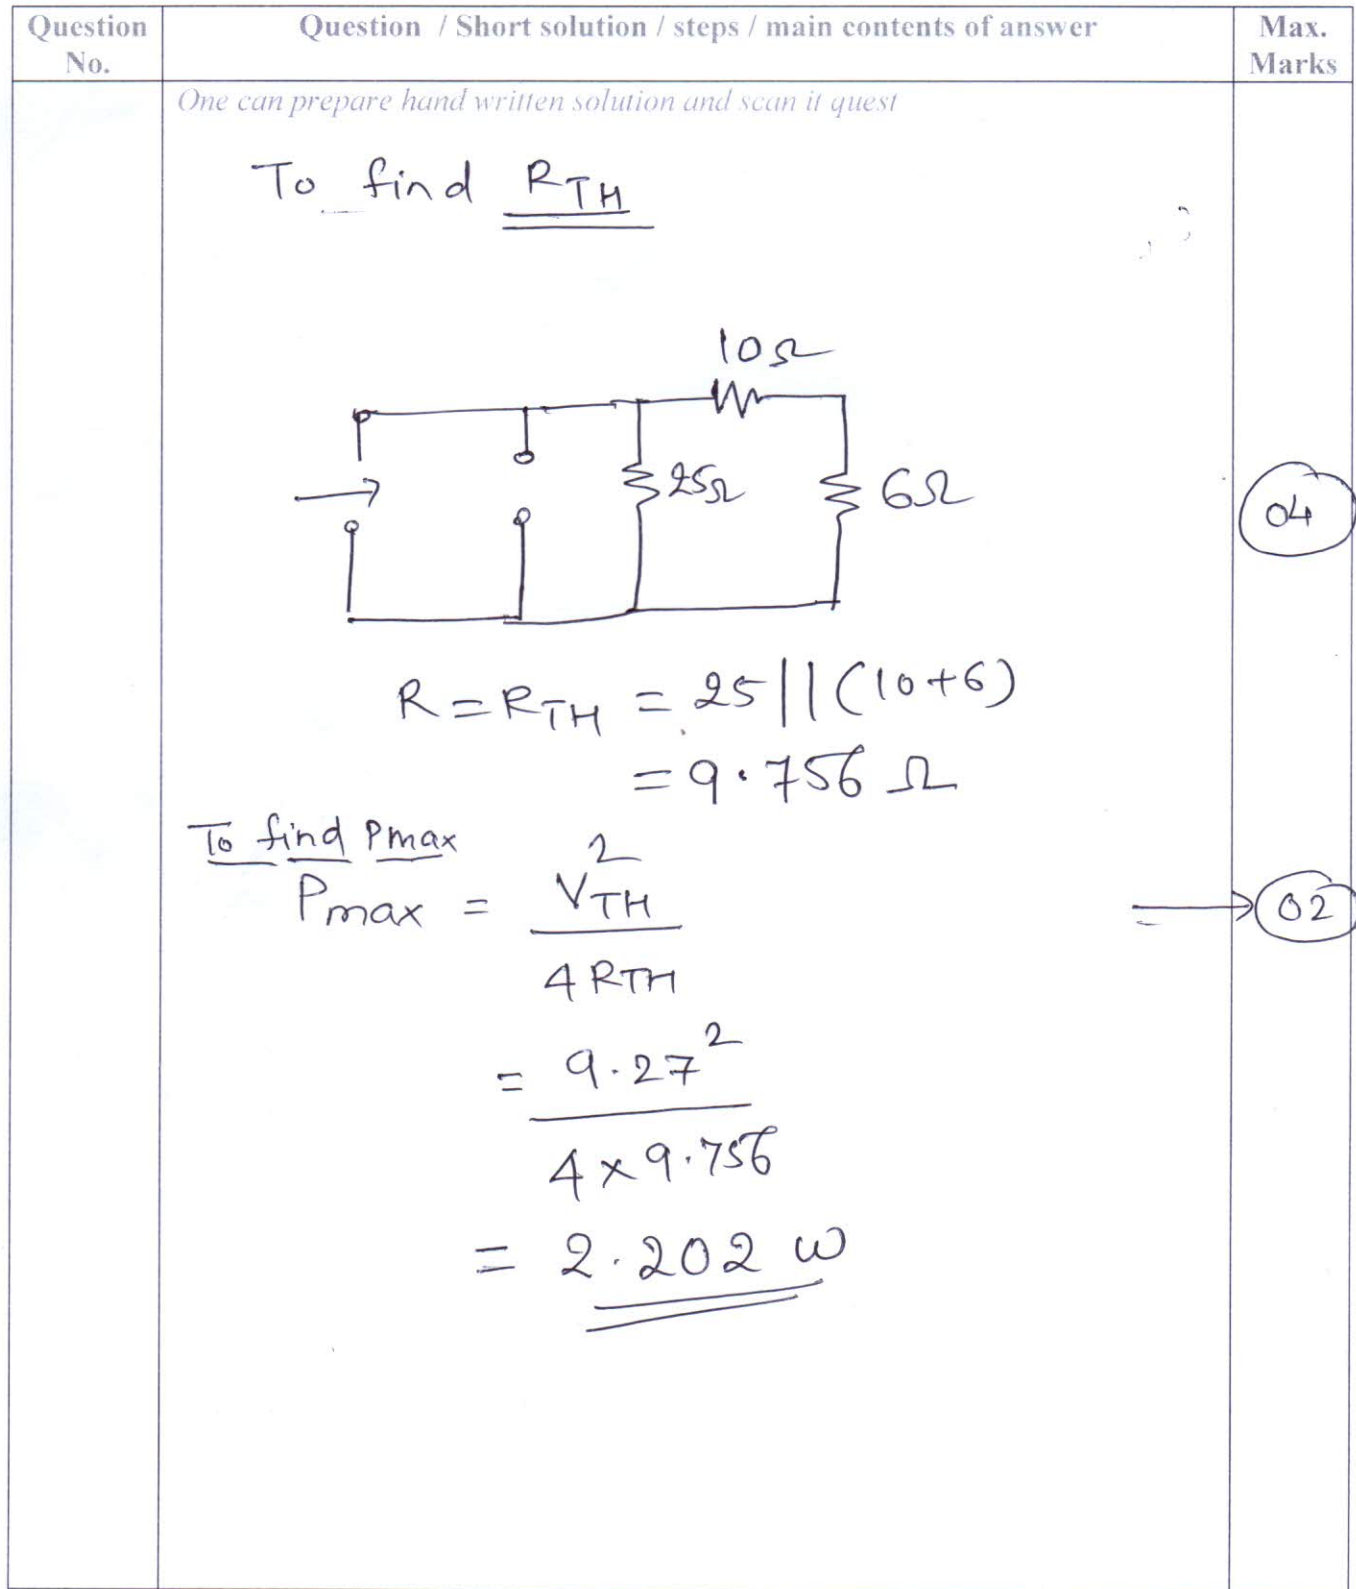 Question No.
Question / Short solution / steps / main contents of answer
Max. Marks
One can prepare hand written solution and scan it quest
To find RTH
10Ω
25Ω
6Ω
04
R = RTH = 25 || (10+6)
= 9.756 Ω
To find Pmax
Pmax = VTH²
4 RTH
02
= 9.27²
4 × 9.756
= 2.202 W